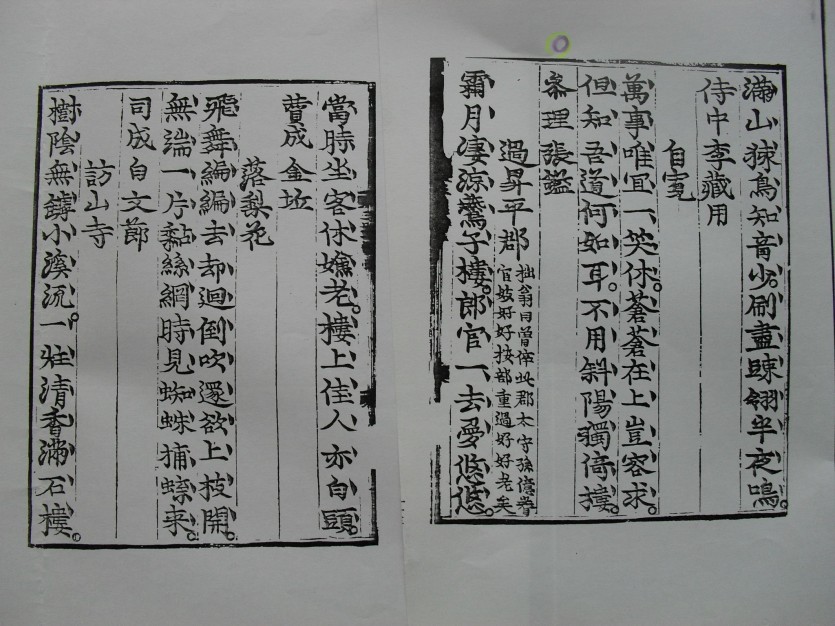 滿山猿鳥知音少。刷盡踈翎半夜鳴。
侍中李藏用
自寬
萬事唯宜一笑休。蒼蒼在上豈容求。
但知吾道何如耳。不用斜陽獨倚樓。
叅理張鎰
過昇平郡
拙翁曰曾倅此郡太守孫億眷
官妓好好按部重過好好老矣
霜月凄涼鷰子樓。郎官一去夢悠悠。
當時坐客休嫌老。樓上佳人亦白頭。
贊成金坵
落梨花
飛舞翩翩去却迴倒吹還欲上枝開。
無端一片黏絲網時見蜘蛛捕蝶來。
司成白文節
訪山寺
樹陰無罅小溪流。一炷清香滿石樓。